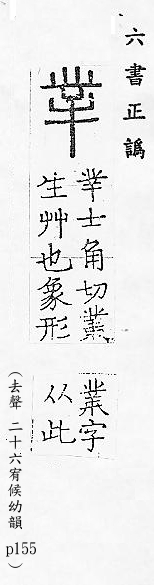 六書正譌
丵
丵士角切叢
生艸也象形
業字
从此
（去聲 二十六宥候幼韻 p155）